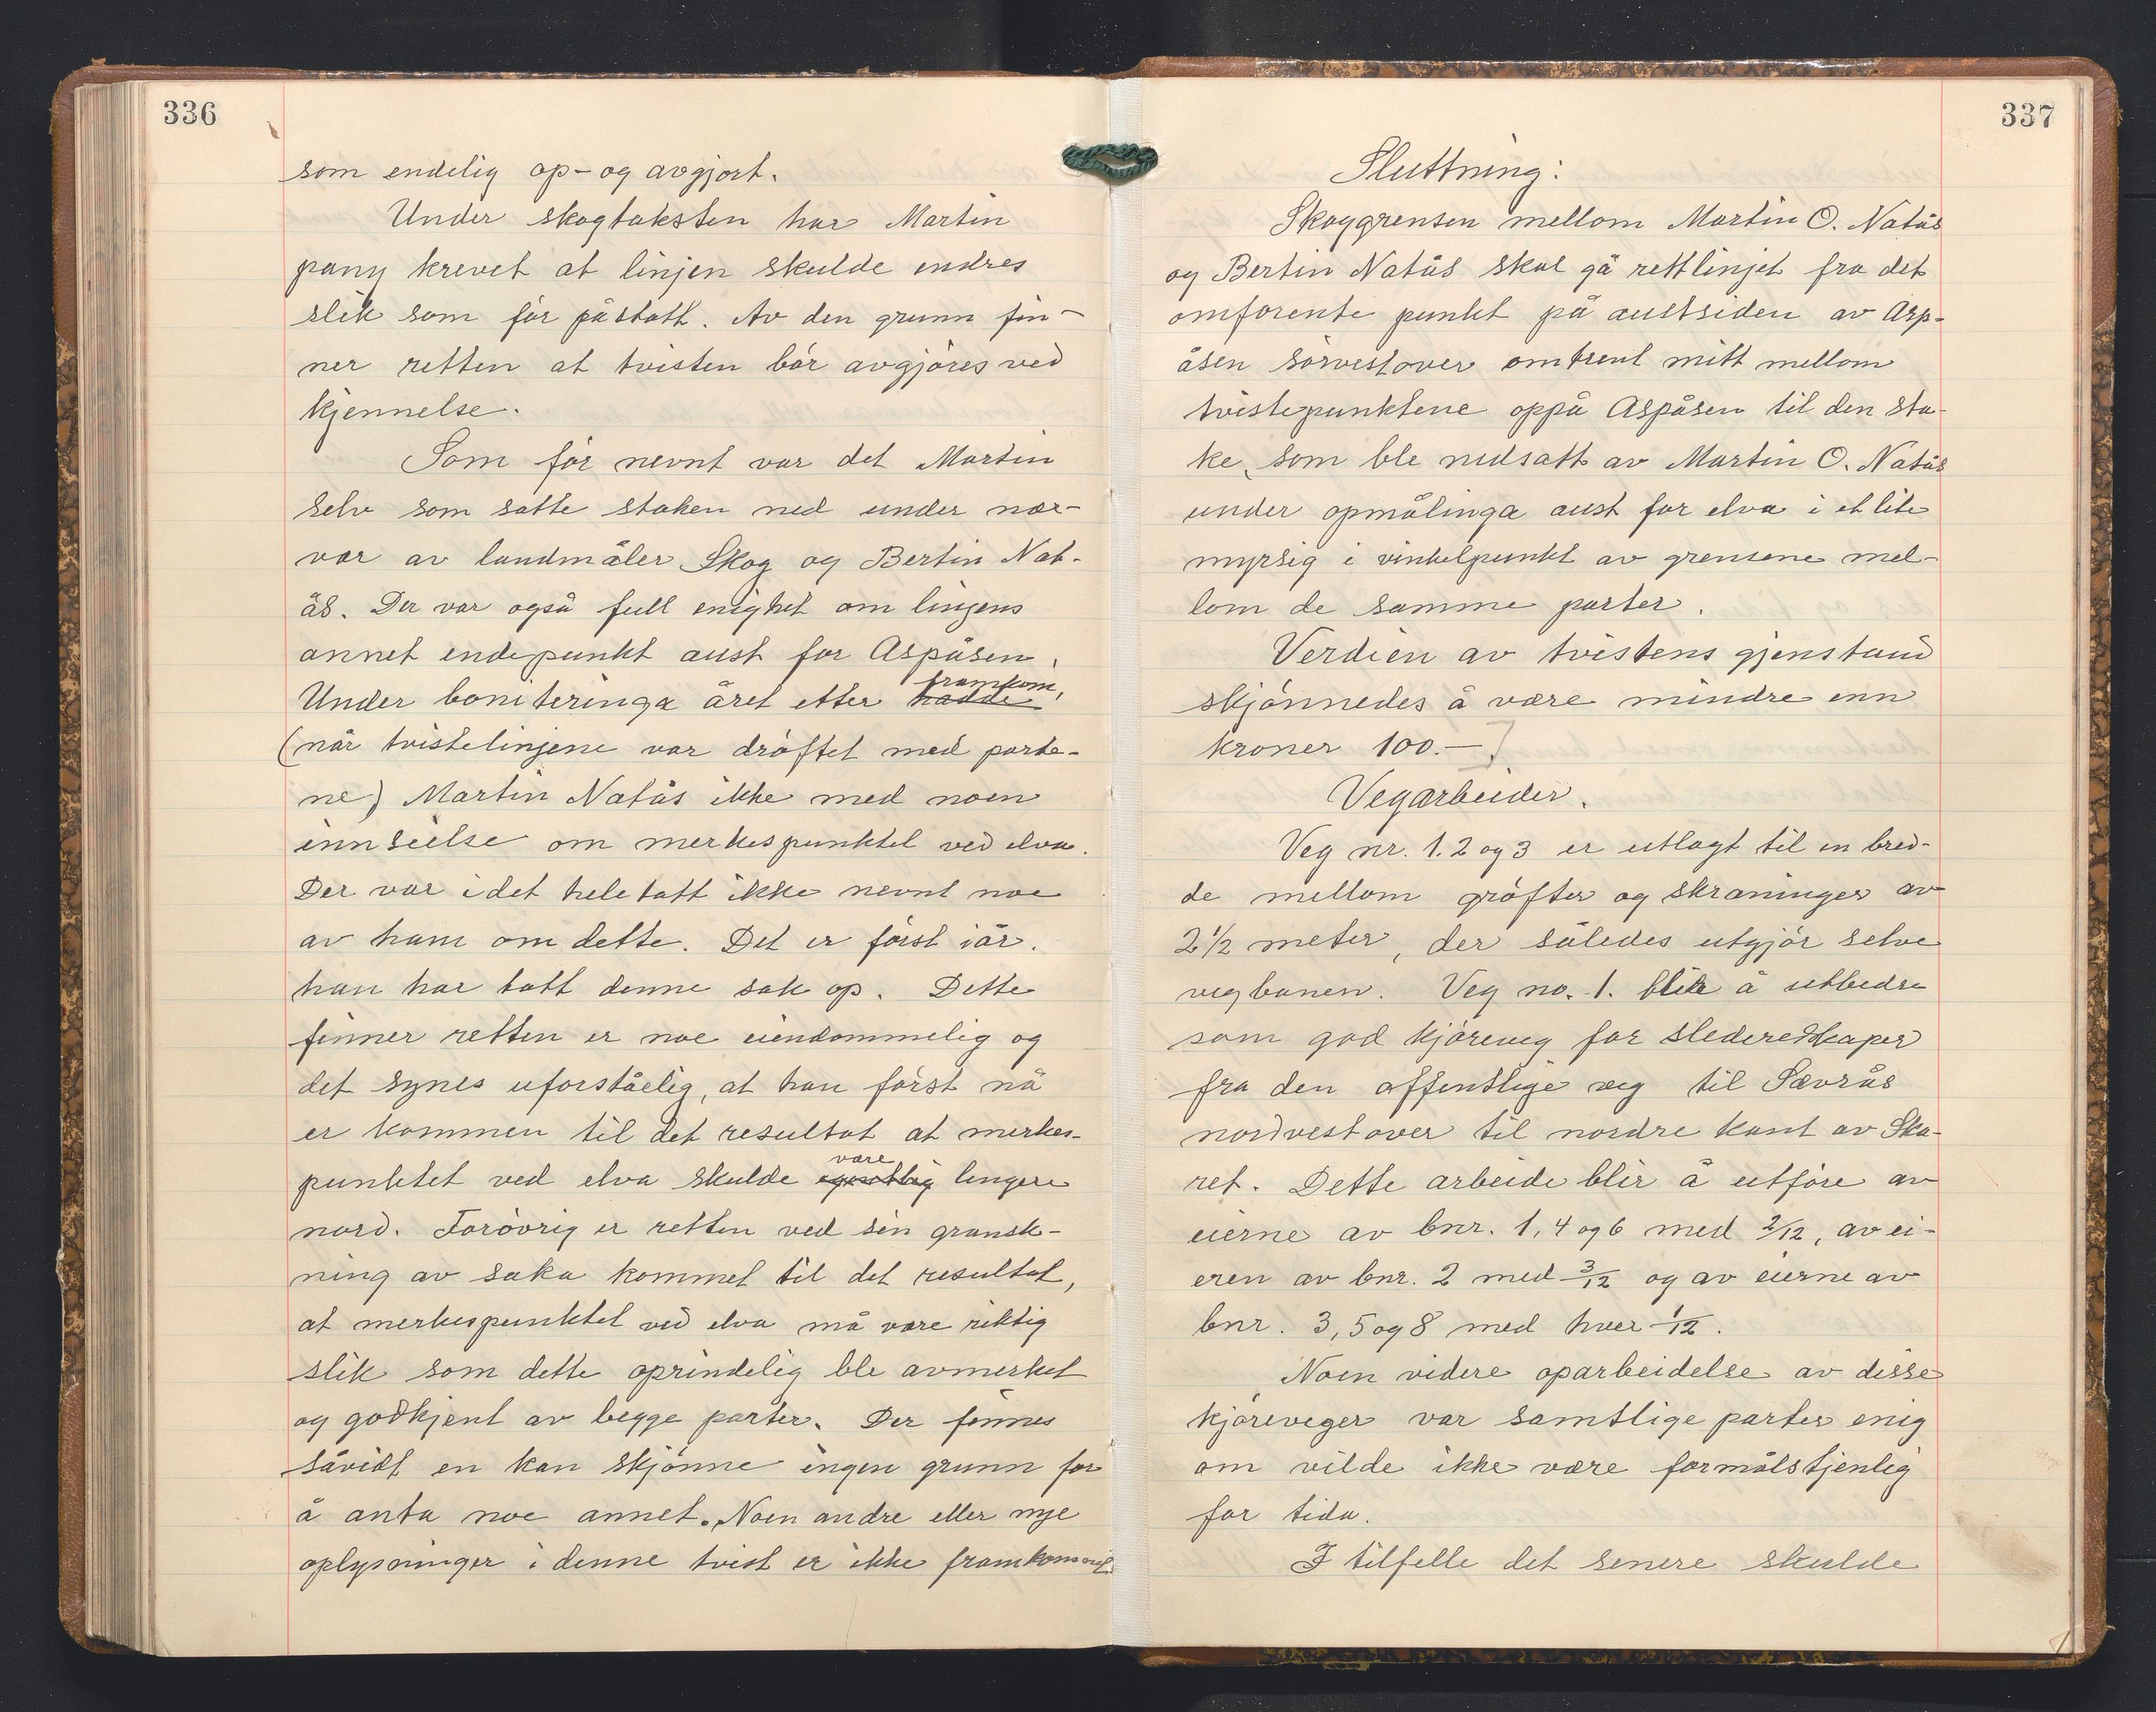 336
som endelig op- og avgjort.
Under skogtaksten har Martin
pany krevet at linjen skulde endres
slik som før påstått. Av den grunn fin-
ner retten at tvisten bör avgjöres ved
kjennelse.
Som för nevnt var det Martin
selv som satte staken ned under nær-
vær av landmåler Skog og Bertin Nat-
ås. Der var også full enighet om linjens
annet endepunkt aust for Aspåsen.
framkom,
Under boniteringa året etter hadde
(når tvistelinjene var dröftet med parte-
ne) Martin Natås ikke med noen
innsielse om merkespunktet ved elva.
Der var i det hele tatt ikke nevnt noe
av ham om dette. Det er först iår.
han har tatt denne sak op. Dette
finner retten er noe eiendommelig og
det synes uforståelig, at han först nå
er kommen til det resultat at merkes-
være
punktet ved elva skulde egentlig lengere
nord. Forövrig er retten ved sin gransk-
ning av saka kommet til det resultat,
at merkespunktet ved elva må være riktig
slik som dette oprindelig ble avmerket
og godkjent av begge parter. Der finnes
såvidt en kan skjönne ingen grunn for
å anta noe annet. Noen andre eller nye
oplysninger i denne tvist er ikke framkommet
337
Sluttning:
Skoggrensen mellom Martin O. Natås
og Bertin Natås skal gå rettlinjet fra det
omforente punkt på austsiden av Asp-
åsen sörvestover omtrent mitt mellom
tvistepunktene oppå Aspåsen til den sta-
ke, som ble nedsatt av Martin O. Natås
under opmålinga aust for elva i et lite
myrsig i vinkelpunkt av grensene mel-
lom de samme parter.
Verdien av tvistens gjenstand
skjönnedes å være mindre enn
kroner 100.-
Vegarbeider.
Veg nr. 1. 2 og 3 er utlagt til en bred-
de mellom gröfter og skråninger av
2½ meter, der således utgjör selve
vegbanen. Veg no. 1. blir å utbedre
som god kjöreveg for slederedskaper
fra den offentlige veg til Sævrås
nordvestover til nordre kant av Ska-
ret. Dette arbeide blir å utföre av
eierne av bnr. 1, 4 og 6 med 2/12, av ei-
eren av bnr. 2 med 3/12 og av eierne av
bnr. 3, 5 og 8 med hver 1/12.
Noen videre oparbeidelse av disse
kjöreveger var samtlige parter enig
om vilde ikke være formålstjenlig
for tida.
I tilfelle det senere skulde